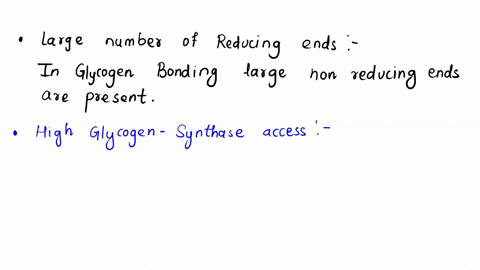 • Large number of Reducing ends :-
In Glycogen Bonding large non reducing ends
are present.
• High Glycogen - Synthase access :-